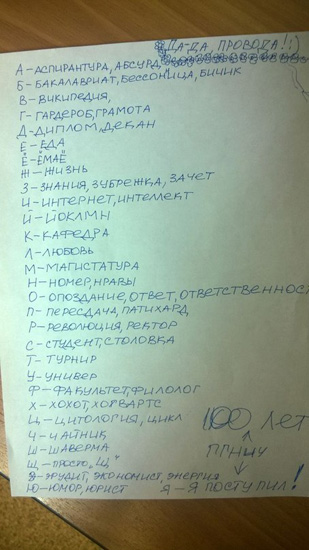 Да-да, провода!:)
А – Аспирантура, абсурд,
Б – Бакалавриат, бессоница, бичик
В – Википедия,
Г – Гардероб, грамота
Д – Диплом, декан
Е – Еда
Ё – Ёмаё
Ж – Жизнь
З – Знания, зубрежка, зачет
И – Интернет, интеллект
Й – Йоклмн
К – Кафедра
Л – Любовь
М – Магистатура
Н – Номер, нравы
О – Опоздание, ответ, ответственност
П – Пересдача, патихард
Р – Революция, ректор
С – Студент, столовка
Т – Турнир
У – Универ
Ф – Факультет, филолог
Х – Хохот, Хогвартс
Ц – Цитология, цикл
Ч – Чайник
Ш – Шаверма
Щ – Просто „Щ"
Э – Эрудит, экономист, энергия
Ю – Юмор, юрист
100 лет
ПГНИУ
Я – Я поступил!